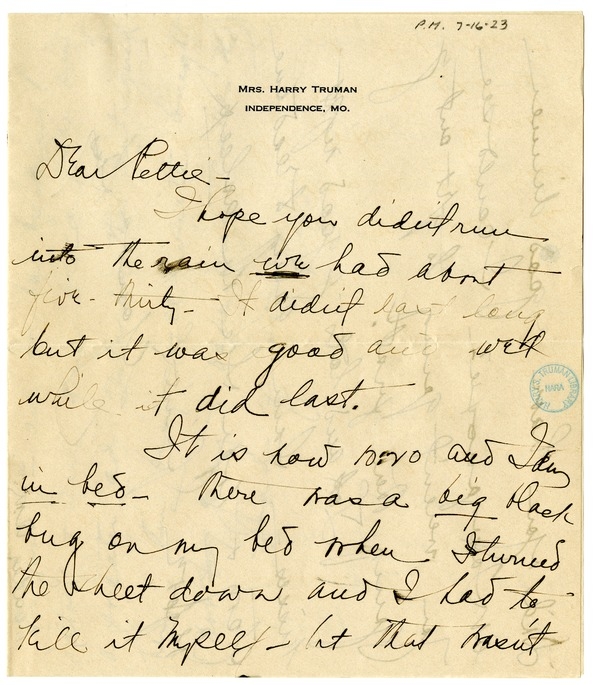 P.M. 7-16-23
MRS. HARRY TRUMAN
INDEPENDENCE, MO.
Dear Pettie-
I hope you didn't run
into the rain we had about
five-thirty- It didn't last long
but it was good and wet
while it did last.
It is now 10:20 and I am
in bed- there was a big black
bug on my bed when I turned
the sheet down and I had to
kill it myself- but that wasn't
HARRY S. TRUMAN LIBRARY
NARA